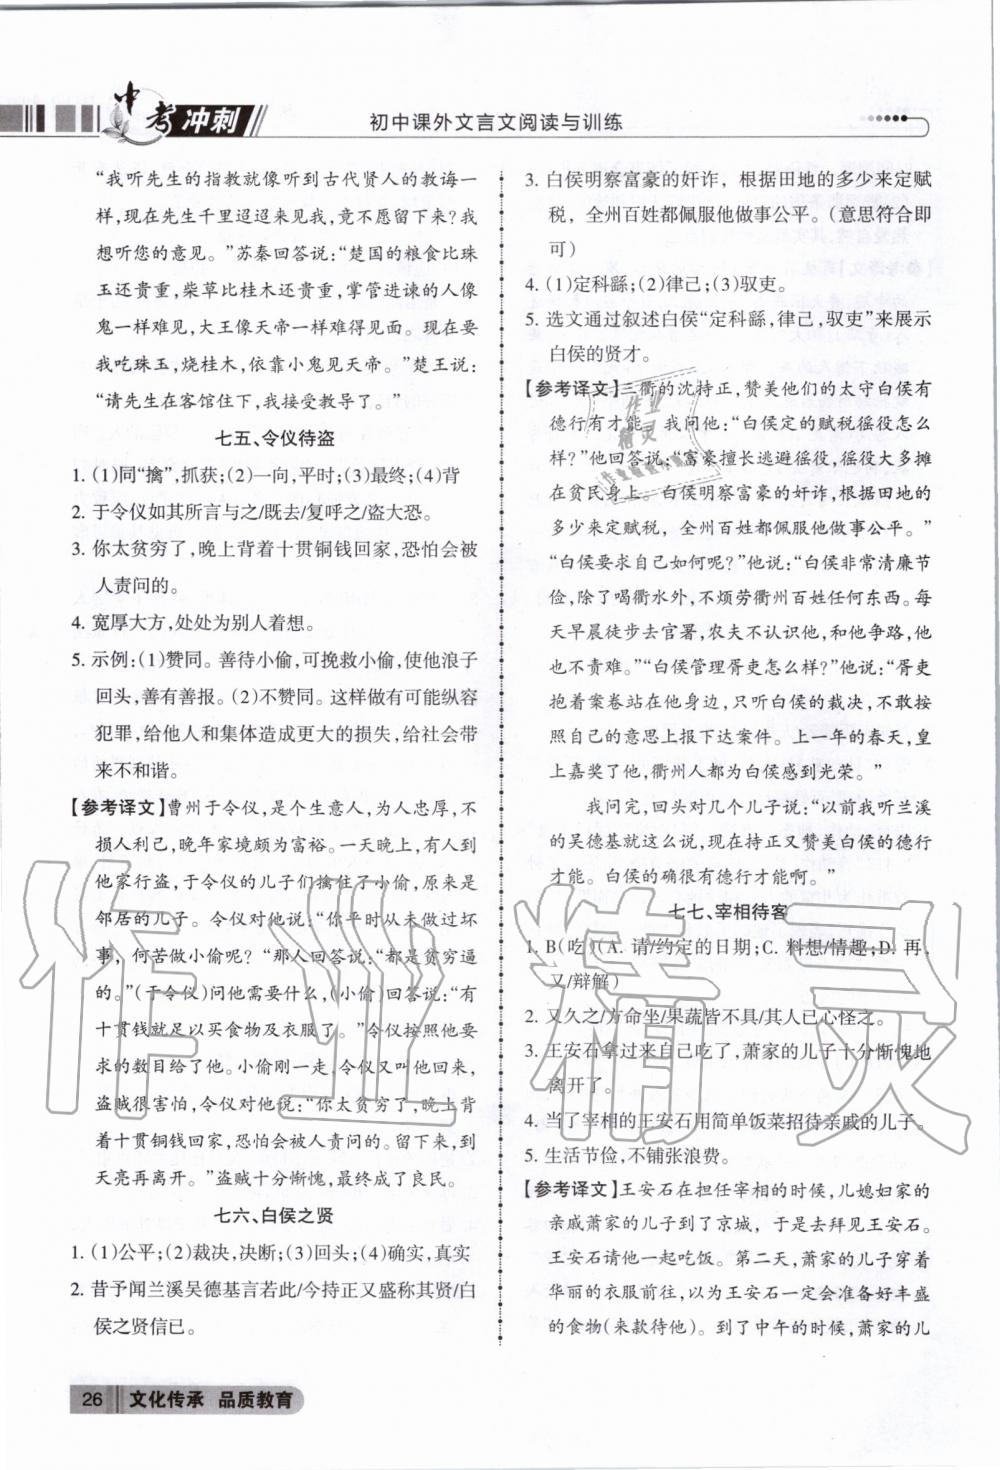 中考冲刺
初中课外文言文阅读与训练
“我听先生的指教就像听到古代贤人的教诲一
样,现在先生千里迢迢来见我,竟不愿留下来?我
想听您的意见。”苏秦回答说:“楚国的粮食比珠
玉还贵重,柴草比桂木还贵重,掌管进谏的人像
鬼一样难见,大王像天帝一样难得见。现在要
我吃珠玉,烧桂木,依靠小鬼见天帝。”楚王说:
“请先生在客馆住下,我接受教导了。”
七五、令仪待盗
1. (1)同“擒”,抓获;(2)一向,平时;(3)最终;(4)背
2. 于令仪如其所言与之/既去/复呼之/盗大恐。
3. 你太贫穷了,晚上背着十贯铜钱回家,恐怕会被
人责问的。
4. 宽厚大方,处处为别人着想。
5. 示例:(1)赞同。善待小偷,可挽救小偷,使他浪子
回头,善有善报。(2)不赞同。这样做有可能纵容
犯罪,给他人和集体造成更大的损失,给社会带
来不和谐。
【参考译文】曹州于令仪,是个生意人,为人忠厚,不
损人利己,晚年家境颇为富裕。一天晚上,有人到
他家行盗,于令仪的儿子们擒住了小偷,原来是
邻居的儿子。令仪对他说:“你平时从未做过坏
事,何苦做小偷呢?”那人回答说:“都是贫穷逼
的。”(于令仪)问他需要什么,(小偷)回答说:“有
十贯钱就足以买食物及衣服了。”令仪按照他要
求的数目给了他。小偷刚一走,令仪又叫他回来,
盗贼很害怕,令仪对他说:“你太贫穷了,晚上背
着十贯铜钱回家,恐怕会被人责问的。留下来,到
天亮再离开。”盗贼十分惭愧,最终成了良民。
七六、白侯之贤
1. (1)公平;(2)裁决,决断;(3)回头;(4)确实,真实
2. 昔予闻兰溪吴德基言若此/今持正又盛称其贤/白
侯之贤信已。
3. 白侯明察富豪的奸诈,根据田地的多少来定赋
税,全州百姓都佩服他做事公平。(意思符合即
可)
4. (1)定科繇;(2)律己;(3)驭吏。
5. 选文通过叙述白侯“定科繇,律己,驭吏”来展示
白侯的贤才。
【参考译文】三衢的沈持正,赞美他们的太守白侯有
德行有才能。我问他:“白侯定的赋税徭役怎么
样?”他回答说:“富豪擅长逃避徭役,徭役大多摊
在贫民身上。白侯明察富豪的奸诈,根据田地的
多少来定赋税,全州百姓都佩服他做事公平。”
“白侯要求自己如何呢?”他说:“白侯非常清廉节
俭,除了喝衢水外,不烦劳衢州百姓任何东西。每
天早晨徒步去官署,农夫不认识他,和他争路,他
也不责难。”“白侯管理胥吏怎么样?”他说:“胥吏
抱着案卷站在他身边,只听白侯的裁决,不敢按
照自己的意思上报下达案件。上一年的春天,皇
上嘉奖了他,衢州人都为白侯感到光荣。”
我问完,回头对几个儿子说:“以前我听兰溪
的吴德基就这么说,现在持正又赞美白侯的德行
才能。白侯的确很有德行才能啊。”
七七、宰相待客
1. B(吃)(A. 请/约定的日期;C. 料想/情趣;D. 再,
又/辩解)
2. 又久之/方命坐/果蔬皆不具/其人已心怪之。
3. 王安石拿过来自己吃了,萧家的儿子十分惭愧地
离开了。
4. 当了宰相的王安石用简单饭菜招待亲戚的儿子。
5. 生活节俭,不铺张浪费。
【参考译文】王安石在担任宰相的时候,儿媳妇家的
亲戚萧家的儿子到了京城,于是去拜见王安石。
王安石请他一起吃饭。第二天,萧家的儿子穿着
华丽的衣服前往,以为王安石一定会准备好丰盛
的食物(来款待他)。到了中午的时候,萧家的儿
26 文化传承 品质教育
作业精灵
作业
精灵